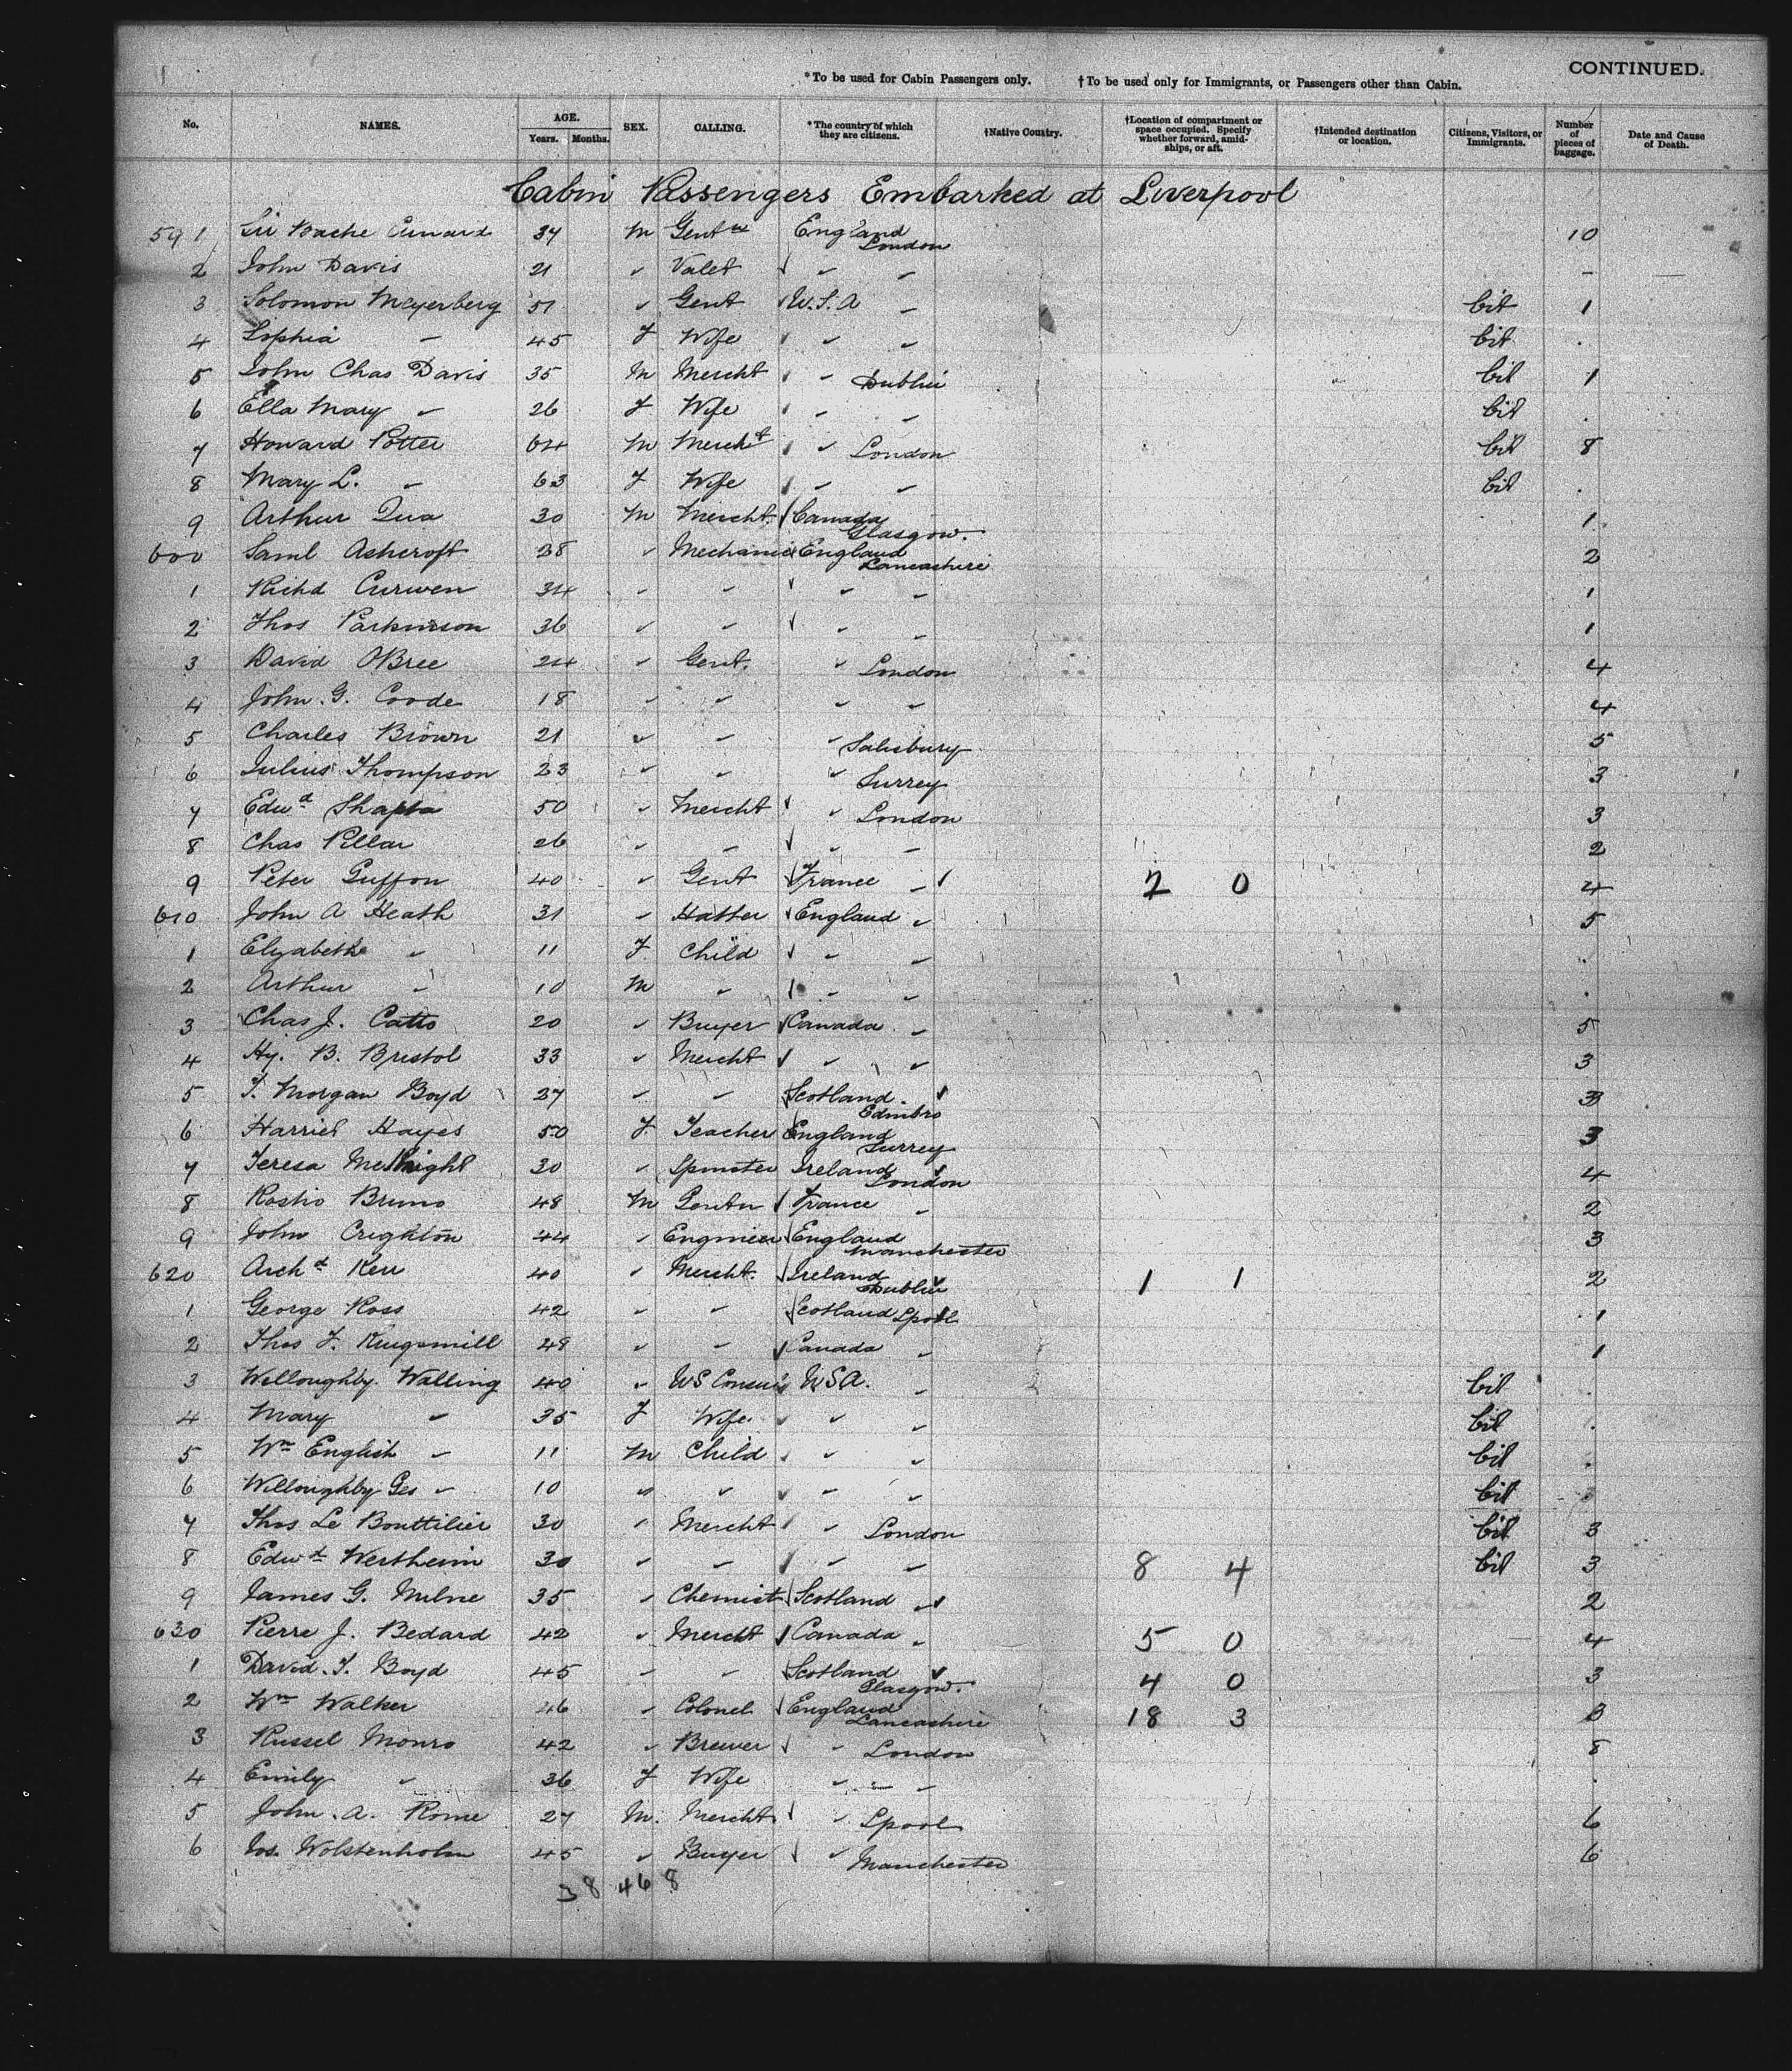 CONTINUED.
*To be used for Cabin Passengers only. †To be used only for Immigrants, or Passengers other than Cabin.
No. NAMES. AGE. Years. Months. SEX. CALLING. *The country of which they are citizens. †Native Country. †Location of compartment or space occupied. Specify whether forward, amidships, or aft. †Intended destination or location. Citizens, Visitors, or Immigrants. Number of pieces of baggage. Date and Cause of Death.
Cabin Passengers Embarked at Liverpool
591 Sir Bache Cunard 34 M Gentn England London 10
2 John Davis 21 " Valet " " -
3 Solomon Meyerberg 51 " Gent U.S.A " Cit 1
4 Sophia " 45 F Wife " " Cit .
5 John Chas Davis 35 M Mercht " Dublin Cit 1
6 Ella Mary " 26 F Wife " " Cit .
7 Howard Potter 64 M Mercht " London Cit 8
8 Mary L. " 63 F Wife " " Cit .
9 Arthur Qua 30 M Mercht. Canada Glasgow. 1
600 Saml Ashcroft 38 " Mechanic England Lancashire 2
1 Richd Curwen 34 " " " " 1
2 Thos Parkinson 36 " " " " 1
3 David OBree 24 " Gent. " London 4
4 John. G. Coode 18 " " " " 4
5 Charles Brown 21 " " " Salisbury 5
6 Julius Thompson 23 " " " Surrey 3
7 Edwd 50 " Mercht " London 3
8 Chas Pillar 26 " " " " 2
9 Peter Guffon 40 " Gent France " 2 0 4
610 John A Heath 31 " Hatter England " 5
1 Elizabeth " 11 F Child " " .
2 Arthur " 10 M " " " .
3 Chas J. Catto 20 " Buyer Canada " 5
4 Hy. B. Bristol 33 " Mercht " " 3
5 T. Morgan Boyd 27 " " Scotland. Edinbro 3
6 Harriet Hayes 50 F. Teacher England Surrey 3
7 Teresa McKnight 30 " Spinster Ireland London 4
8 Bruno 48 M Gentn France " 2
9 John Crighton 44 " Engineer England Manchester 3
620 Archd Kerr 40 " Mercht. Ireland Dublin 1 1 2
1 George Ross 42 " " Scotland Lpool 1
2 Thos F. Kingsmill 48 " " Canada " 1
3 Willoughby Walling 40 " US Consul USA. " Cit .
4 Mary " 35 F Wife " " Cit .
5 Wm English " 11 M Child " " Cit .
6 Willoughby Geo " 10 " " " " Cit
7 Thos Le Bouttilier 30 " Mercht " London Cit 3
8 Edwd Wertheim 30 " " " " 8 4 Cit 3
9 James G. Milne 35 " Chemist Scotland " 2
630 Pierre J. Bedard 42 " Mercht Canada " 5 0 4
1 David. T. Boyd 45 " " Scotland Glasgow. 4 0 3
2 Wm Walker 46 " Colonel England Lancashire 18 3 3
3 Russel Monro 42 " Brewer " London 8
4 Emily " 36 F Wife " " .
5 John. A. Rome 27 M. Mercht " Lpool 6
6 Jos. Wolstenholm 45 " Buyer " Manchester 6
38 46 8